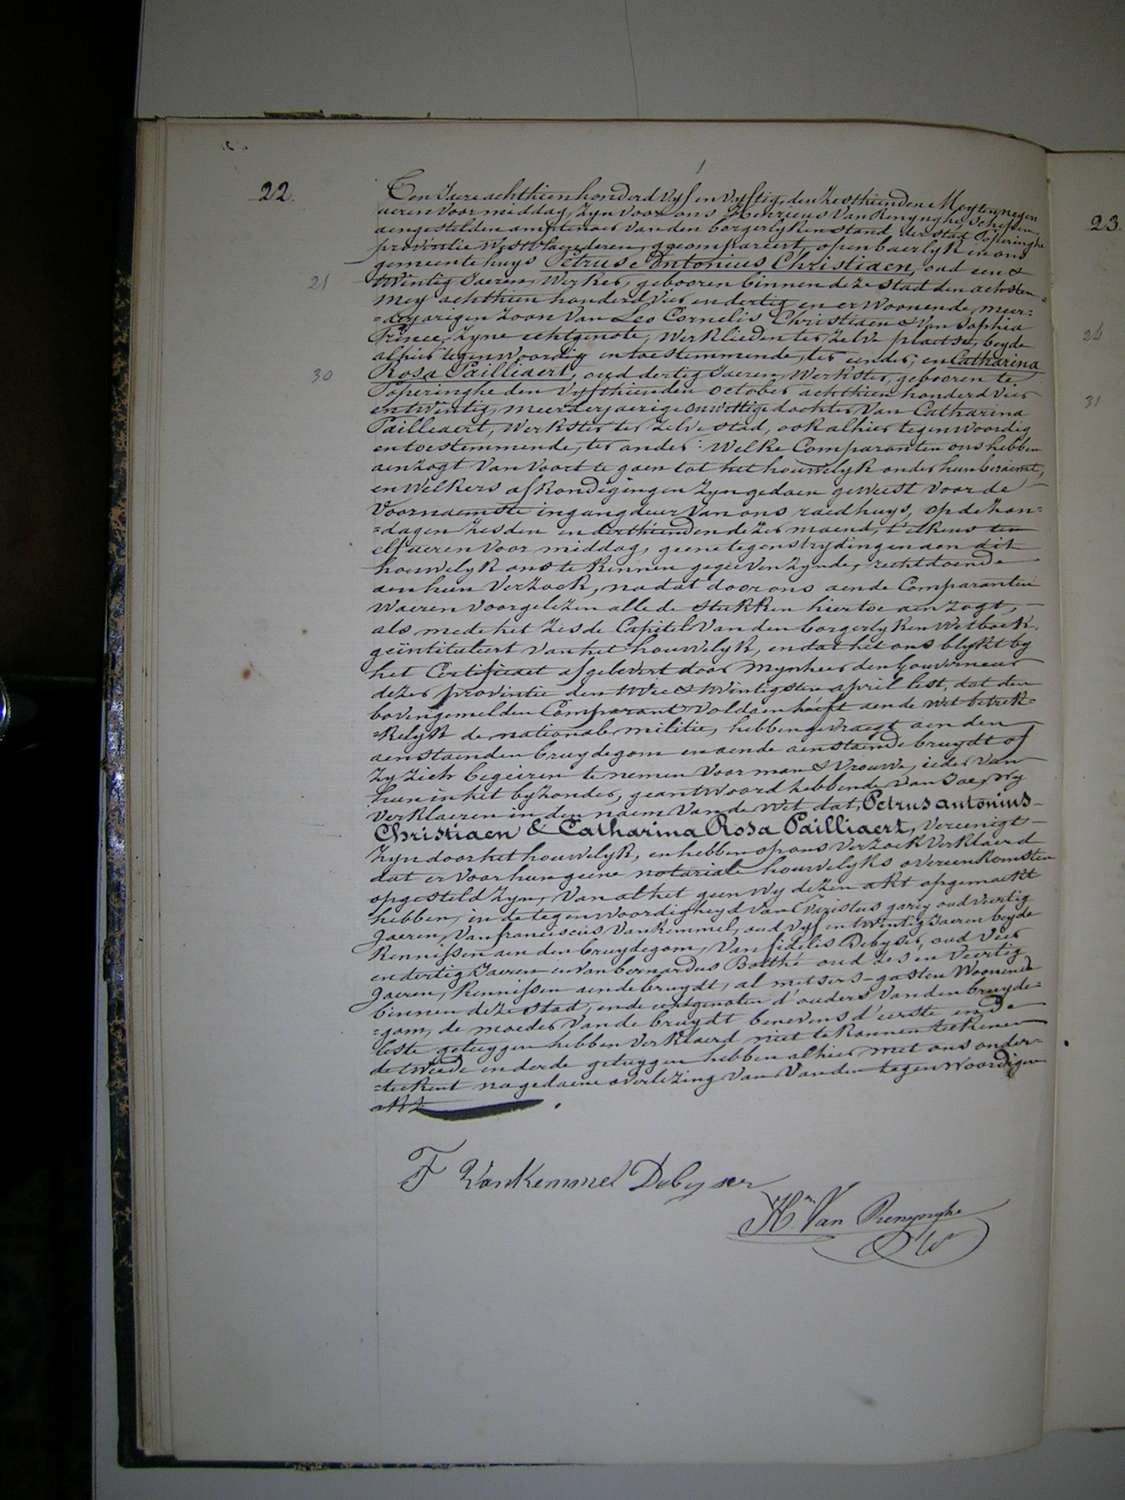 22.
Ten Jaere achthien honderd Vyf en Vyftig, den Zesthienden Mey ten negen
aeren Voor middag, Zyn Voor ons Henricus Van Renynghe, Schepen
aengestelden amptenaer Van den borgerlyken stand der stad Poperinghe
provincie West Vlaenderen, gecompareert, openbaerlyk in ons
gemeente huys Petrus Antonius Christiaen, oud een &
21
twintig Jaeren, Werker, gebooren binnen deze stad den achsten
Mey achthien honderd Vier en dertig en er Woonende, meer=
=derjarigen Zoon Van Leo Cornelis Christiaen & Van Sophia
Prince, Zyne echtgenote, Werklieden ter Zelve plaetse, beyde
alhier tegenwoordig en toestemmende, ter eender; en Catharina
30
Rosa Pailliaert, oud dertig Jaeren, Werkster, gebooren te
Poperinghe den Vyfthienden october achthien honderd Vier
en twintig, meerderjaerige onwettige dochter Van Catharina
Pailliaert, Werkster ter Zelve stad, ook alhier tegenwoordig
en toestemmende, ter ander: Welke Comparanten ons hebben
aenzogt Van Voort te gaen tot het houwelyk onder hun beraemt,
en Welkers afkondigingen Zyn gedaen geweest voor de
Voornaemste ingangdeur Van ons raedhuys, op de Zon=
=dagen Zesden en derthienden dezer maend, t'elkens ten
elf aeren Voor middag, geene tegenstrydingen aen dit
houwelyk ons te kennen gegeeven Zynde, recht doende
aen hun Verzoek, na dat door ons aende Comparanten
Waeren Voorgelezen alle de stukken hier toe aenzogt,
als mede het Zesde Capitel Van den borgerlyken Wetboek
geïntituleert Van het houwelyk, en dat het ons blykt by
het Certificaet afgelevert door Mynheer den Gouverneur
dezer provintie den twee & twintigsten april lest, dat den
bovengemelden Comparant Voldaen heeft aen de Wet betrek=
=kelyk de nationale militie, hebben gevraegt aen den
aenstaenden bruydegom en aende aenstaende bruydt of
Zy Zich begeeren te nemen Voor man & Vrouwe, ieder van
hun in het byzonder, geantwoord hebbende van Jae, Wy
Verklaeren in den naem Van de Wet dat, Petrus antonius
Christiaen & Catharina Rosa Pailliaert, Vereenigt
Zyn door het houwelyk, en hebben op ons Verzoek Verklaerd
dat er Voor hun geene notariale houwelyks overeenkomsten
opgesteld Zyn, Van al het geen Wy dezen akt opgemaekt
hebben, in de tegenwoordigheyd Van Evaristus garry oud Veertig
Jaeren, Van franciscus Van Kemmel, oud Vyf en twintig Jaeren beyde
Kennissen aen den bruydegom, Van fidelis Debyser, oud Vier
en dertig Jaeren en van bernardus Botthé oud Zes en Veertig
Jaeren, Kennissen aende bruydt, al metsers-gasten Woonende
binnen deze stad, en de echtgenoten d'ouders Van den bruyde=
=gom, de moeder Van de bruydt benevens d'eerste en de
leste getuygen hebben Verklaerd niet te konnen teekenen
de tweede en derde getuygen hebben alhier met ons onder=
=teekent na gedaene overlezing Van Van den tegenwoordigen
akt
F VanKemmel Debyser
Hri Van Renynghe
23.
24
31